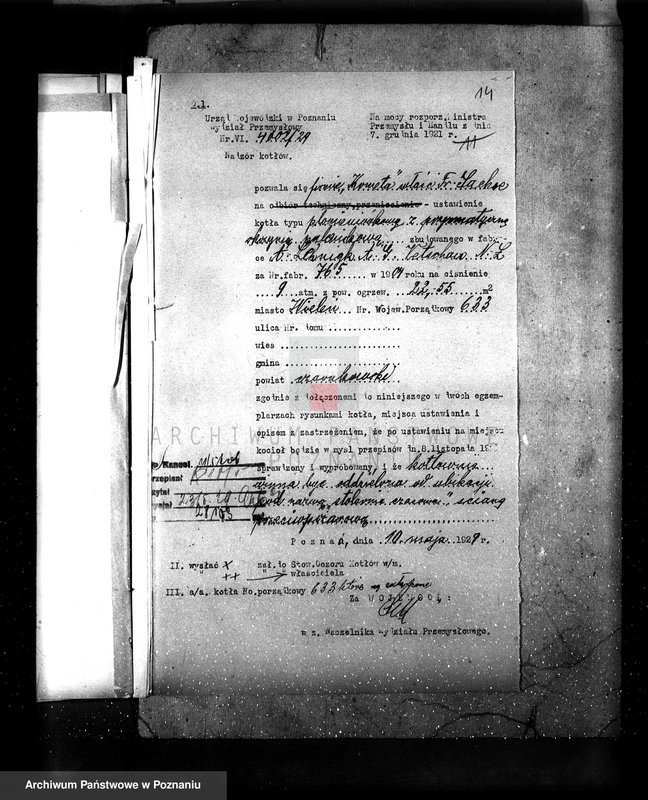 14
Urząd Wojewódzki w Poznaniu
Wydział Przemysłowy
Nr.VI. /29
Nadzór kotłów.
Na mocy rozporz. Ministra
Przemysłu i Handlu z dnia
7. grudnia 1921 r.
pozwala się firmie „Kometa" właśc. Fr.
na odbiór techniczny, przeniesienie - ustawienie
kotła typu płomieniówkowy z
zbudowanego w fabry-
ce A.
za Nr.fabr. 765 w 1904 roku na ciśnienie
9 atm. z pow. ogrzew. 22,55 m2
miasto Wieleń Nr. Wojew.Porządkowy 633
ulica Nr. domu ...............
wieś .........................
gmina ........................
powiat czarnkowski
zgodnie z dołączonemi do niniejszego w dwoch egzem-
plarzach rysunkami kotła, miejsca ustawienia i
opisem z zastrzeżeniem, że po ustawieniu na miejscu
kocioł będzie w myśl przepisów dn.8.listopada 19
sprawdzony i wypróbowany, i że kotłownia
winna być oddzielona od ubikacji
pod nazwą „stolarnia czasowa" ścianą
przeciwpożarową
Poznań, dnia 10 maja 1929 r.
II. wysłać x zał. do Stow.Dozoru Kotłów w/m.
++ właściciela
III. a/a. kotła No.porządkowy 633
Za WOJEWODĘ:
w z. Naczelnika Wydziału Przemysłowego.
ARCHIWUM PAŃSTWOWE
W POZNANIU
Archiwum Państwowe w Poznaniu